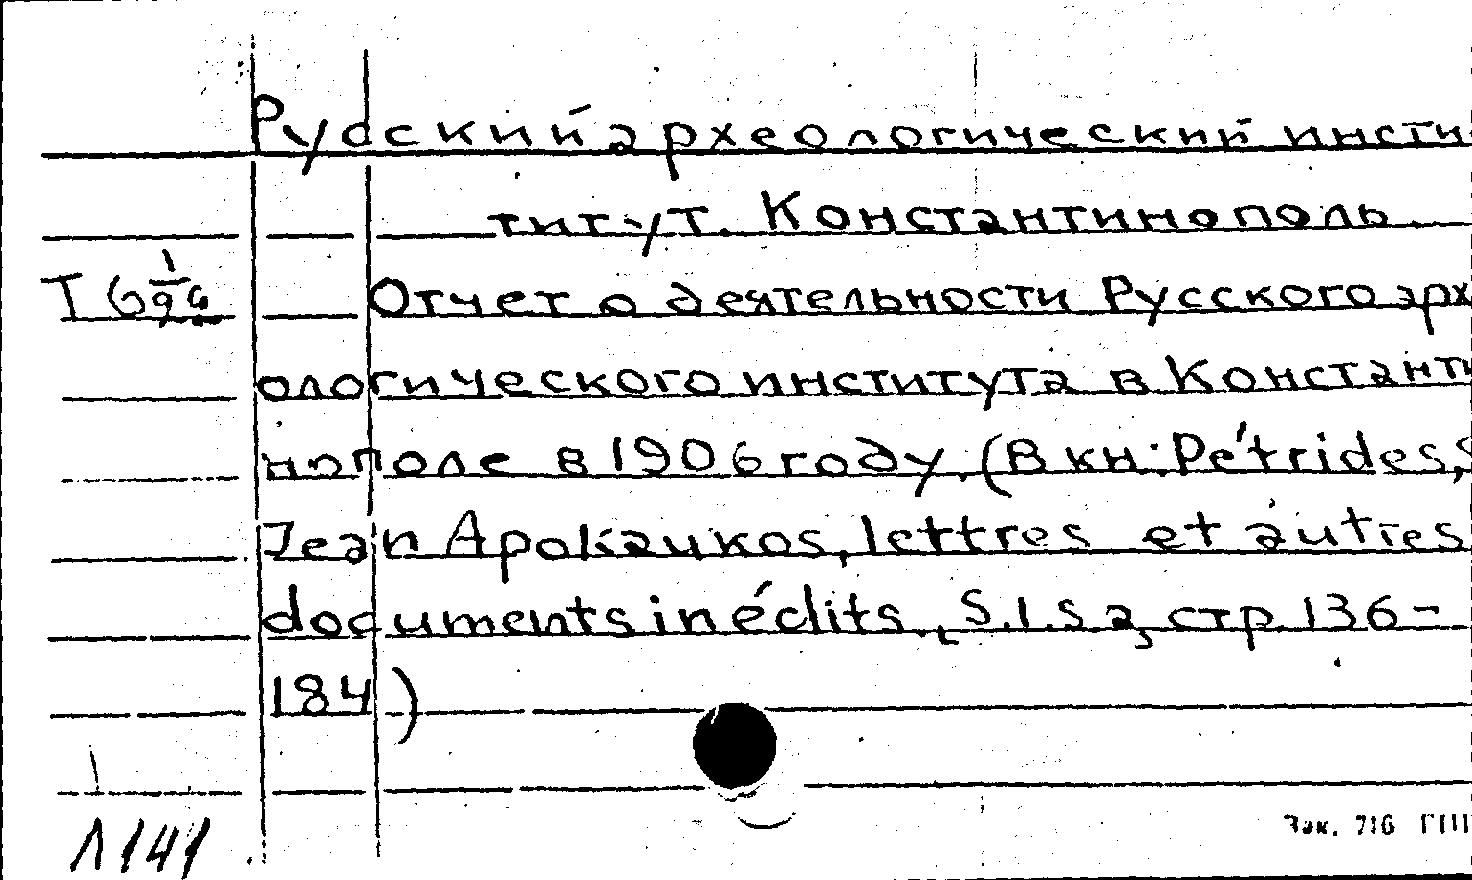 Русский археологический инсти-
титут. Константинополь.
Т 6 1/96 Отчет о деятельности Русского арх
ологического института в Константи
нополе в 1906 году. (В кн: Pétrides, S
Jean Apokaukos, lettres et autres
documents inédits., S.l. s a, стр. 136-
184)
Л 141
Зак. 716 ГПП